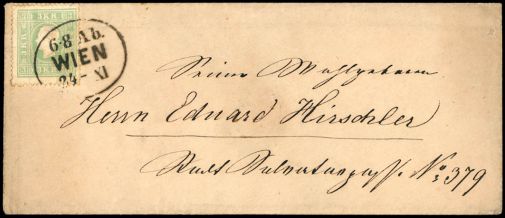 6-8 Ab.
WIEN
24 XI
Seine Wohlgeboren
Herrn Eduard Hirschler
Stadt Salvatorgasse No 379